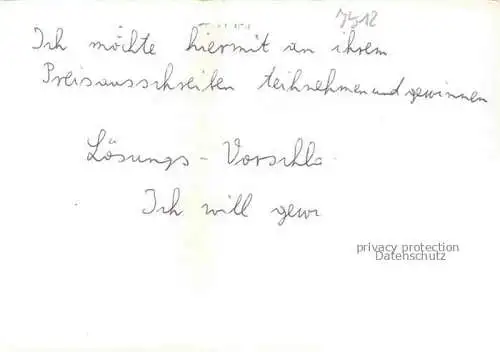 Ich möchte hiermit an ihrem
Preisausschreiben teihnehmen und gewinnen
Lösungs - Vorschla
Ich will gew
privacy protection
Datenschutz